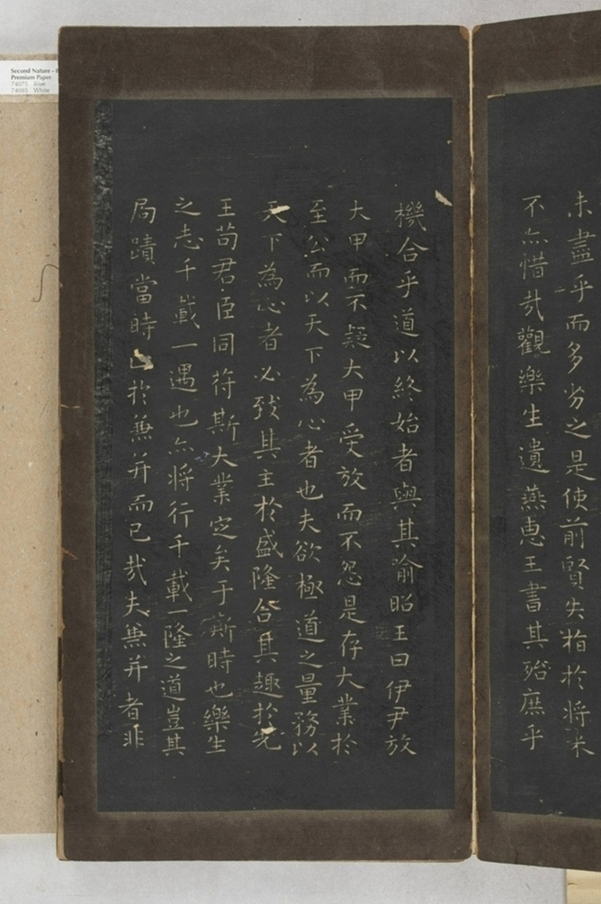 未盡乎而多劣之是使前賢失指於將來
不亦惜哉觀樂生遺燕惠王書其殆庶乎
機合乎道以終始者與其喻昭王曰伊尹放
大甲而不疑大甲受放而不怨是存大業於
至公而以天下為心者也夫欲極道之量務以
天下為心者必致其主於盛隆合其趣於先
王苟君臣同符斯大業定矣于斯時也樂生
之志千載一遇也亦將行千載一隆之道豈其
局蹟當時止於兼并而已哉夫兼并者非
Second Nature -
Premium Paper
74075 Blue
74085 White